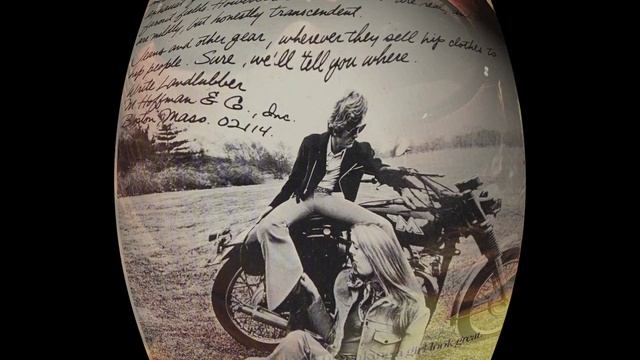 are mildly, but honestly transcendent.
Jeans and other gear, wherever they sell hip clothes to
hip people. Sure, we'll tell you where.
Write Landlubber
M. Hoffman & Co., Inc.
Boston, Mass. 02114.
girl look great.